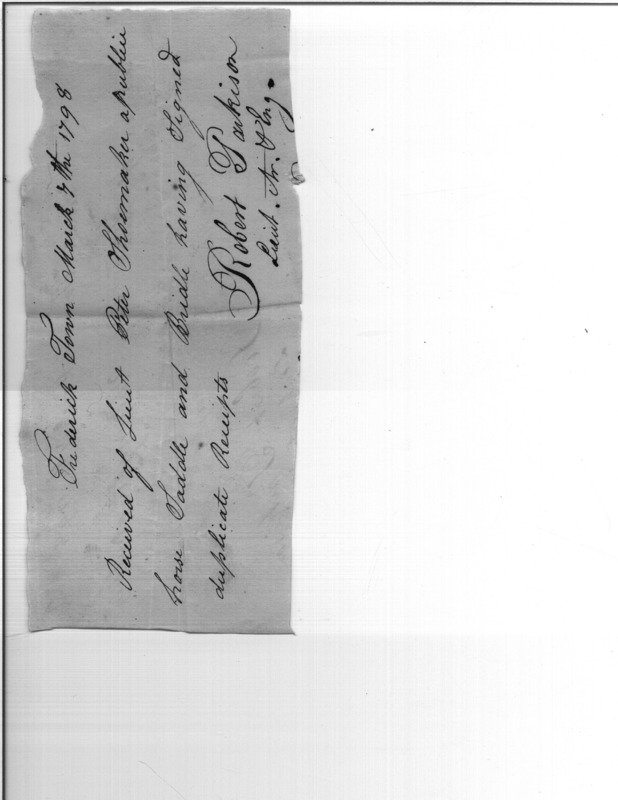 Frederick Town March 7th 1798
Received of Lieut Peter Shoemaker a publice
horse Saddle and Bridle having Signed
duplicate Receipts
Robert Parkison
Lieut. Ar. & Eng.